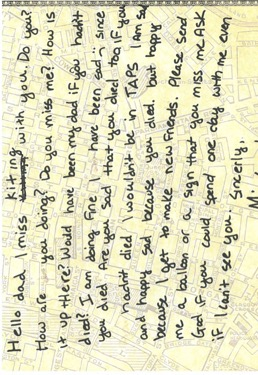 Hello dad, I miss kiting with you. Do you?
How are you doing? Do you miss me? How is
it up there? Would have been my dad if you hadn't
died? I am doing fine I have been sad :( since
you died Are you sad that you died too, if you
hadn't died I wouldn't be in TAPS I am sad
and happy sad because you died. but happy
because I get to make new friends. Please send
me a ballon or a sign that you miss me. Ask
God if you could spend one day with me even
if I can't see you. Sincerily.